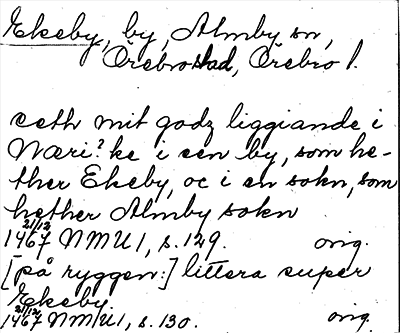 Ekeby, by, Almby sn,
Örebro stad, Örebro l.
eeth mit godz liggiande i
Næri?ke i een by, som he-
ther Ekeby, oc i en sokn, som
hether Almby sokn
21/12
1467 NMU 1, s. 129. orig.
[på ryggen:] littera super
Ekeby.
21/12
1467 NMU 1, s. 130. orig.